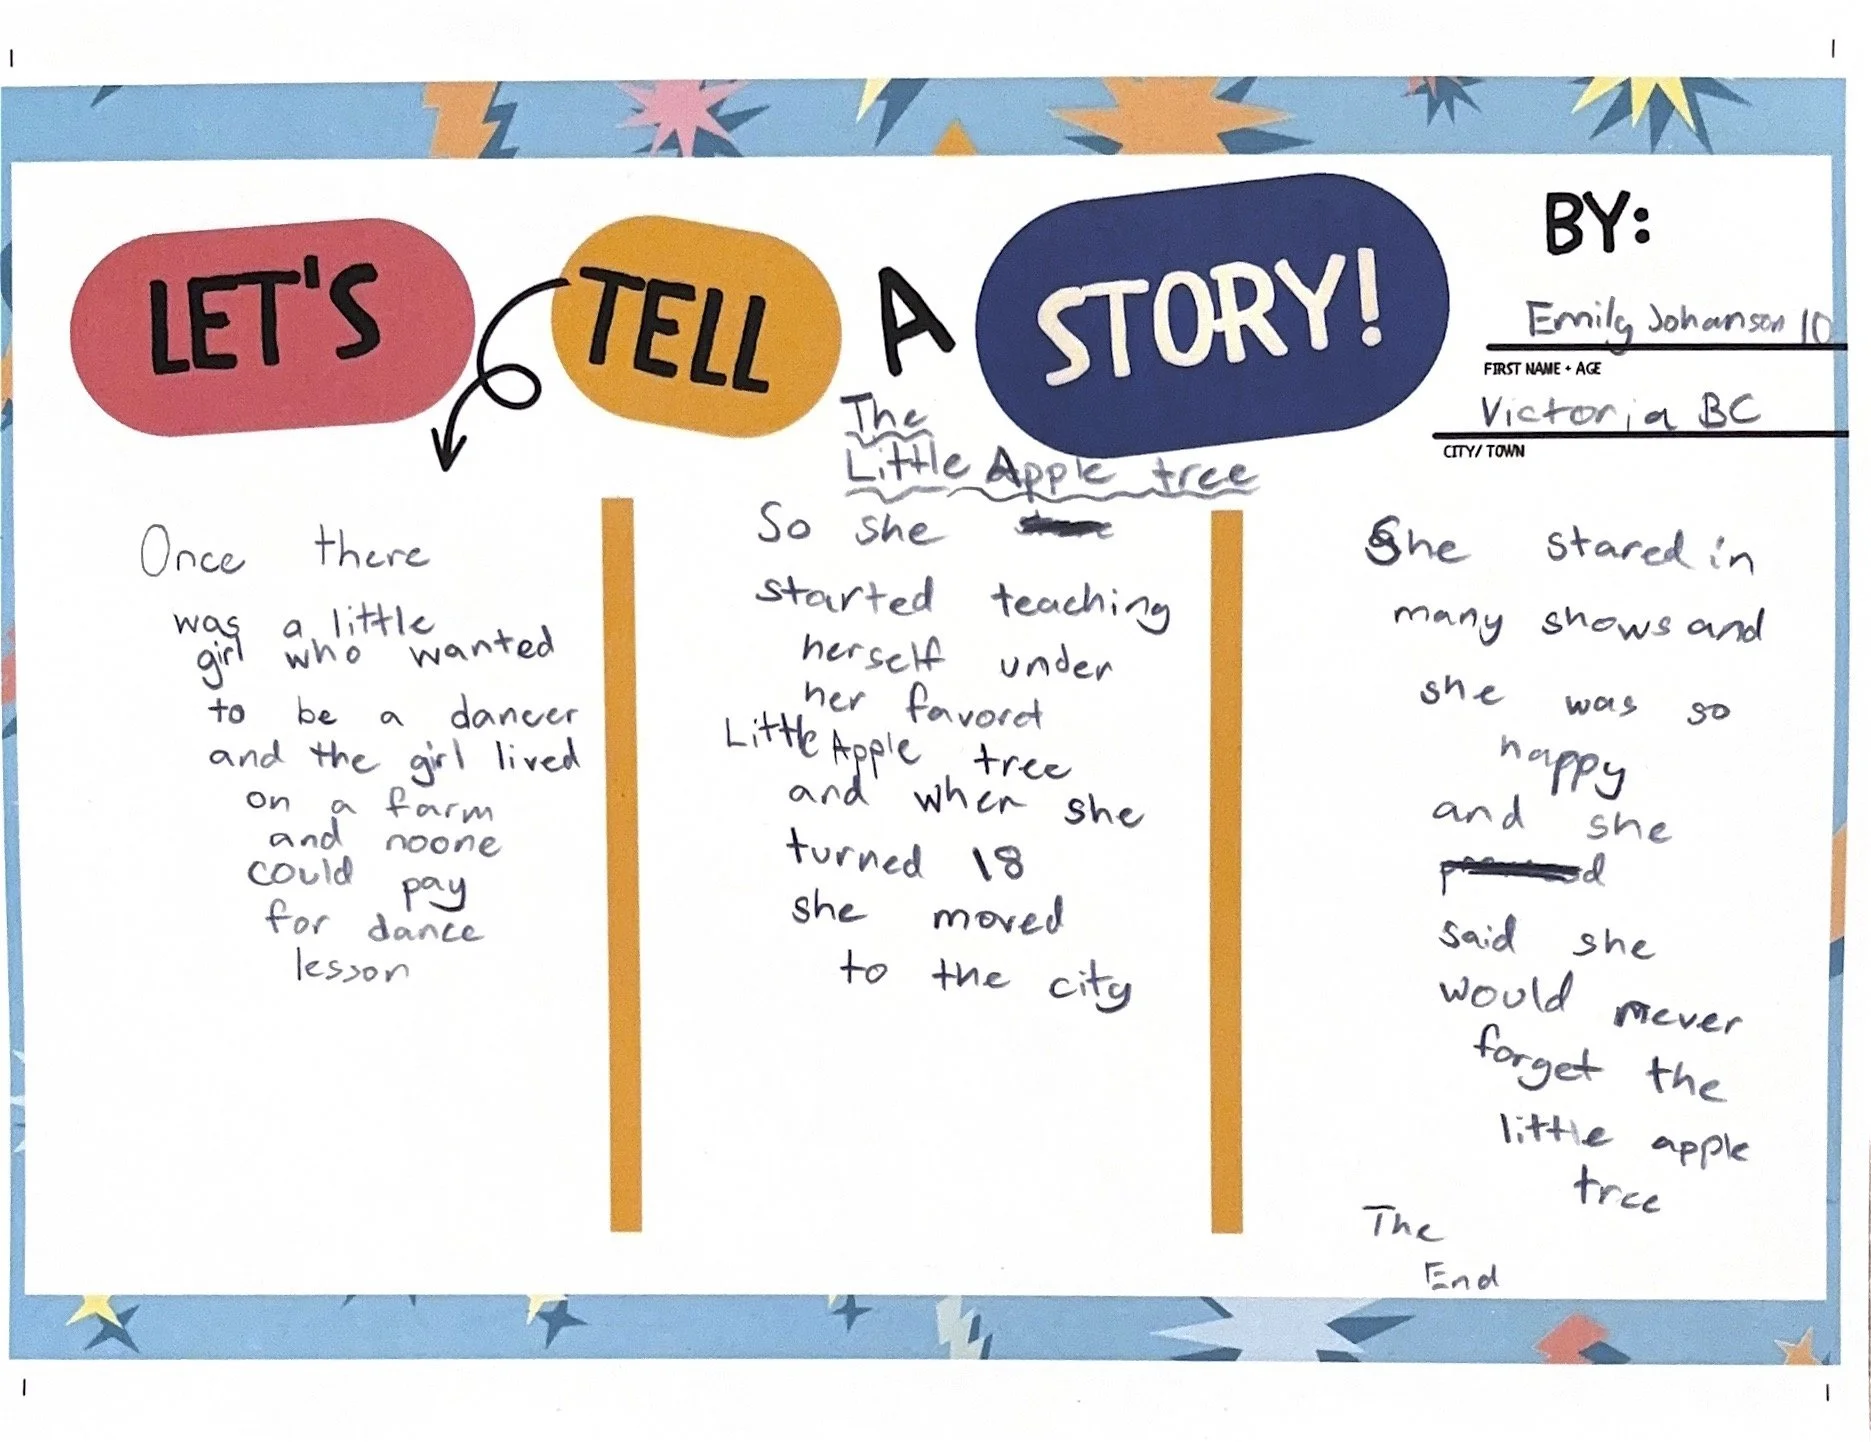 LET'S TELL A STORY!
BY:
Emily Johanson 10
FIRST NAME + AGE
Victoria BC
CITY/ TOWN
The
Little Apple tree
Once there
was a little
girl who wanted
to be a dancer
and the girl lived
on a farm
and noone
could pay
for dance
lesson
So she
started teaching
herself under
her favoret
Little Apple tree
and when she
turned 18
she moved
to the city
She stared in
many shows and
she was so
happy
and she
said she
would never
forget the
little apple
tree
The
End